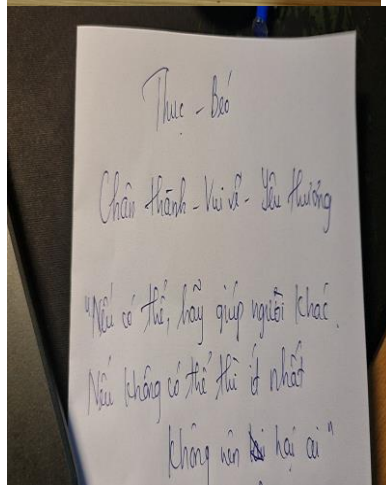 Thục - Béo
Chân thành - Vui vẻ - Yêu thương
"Nếu có thể, hãy giúp người khác.
Nếu không có thể thì ít nhất
không nên hại ai"